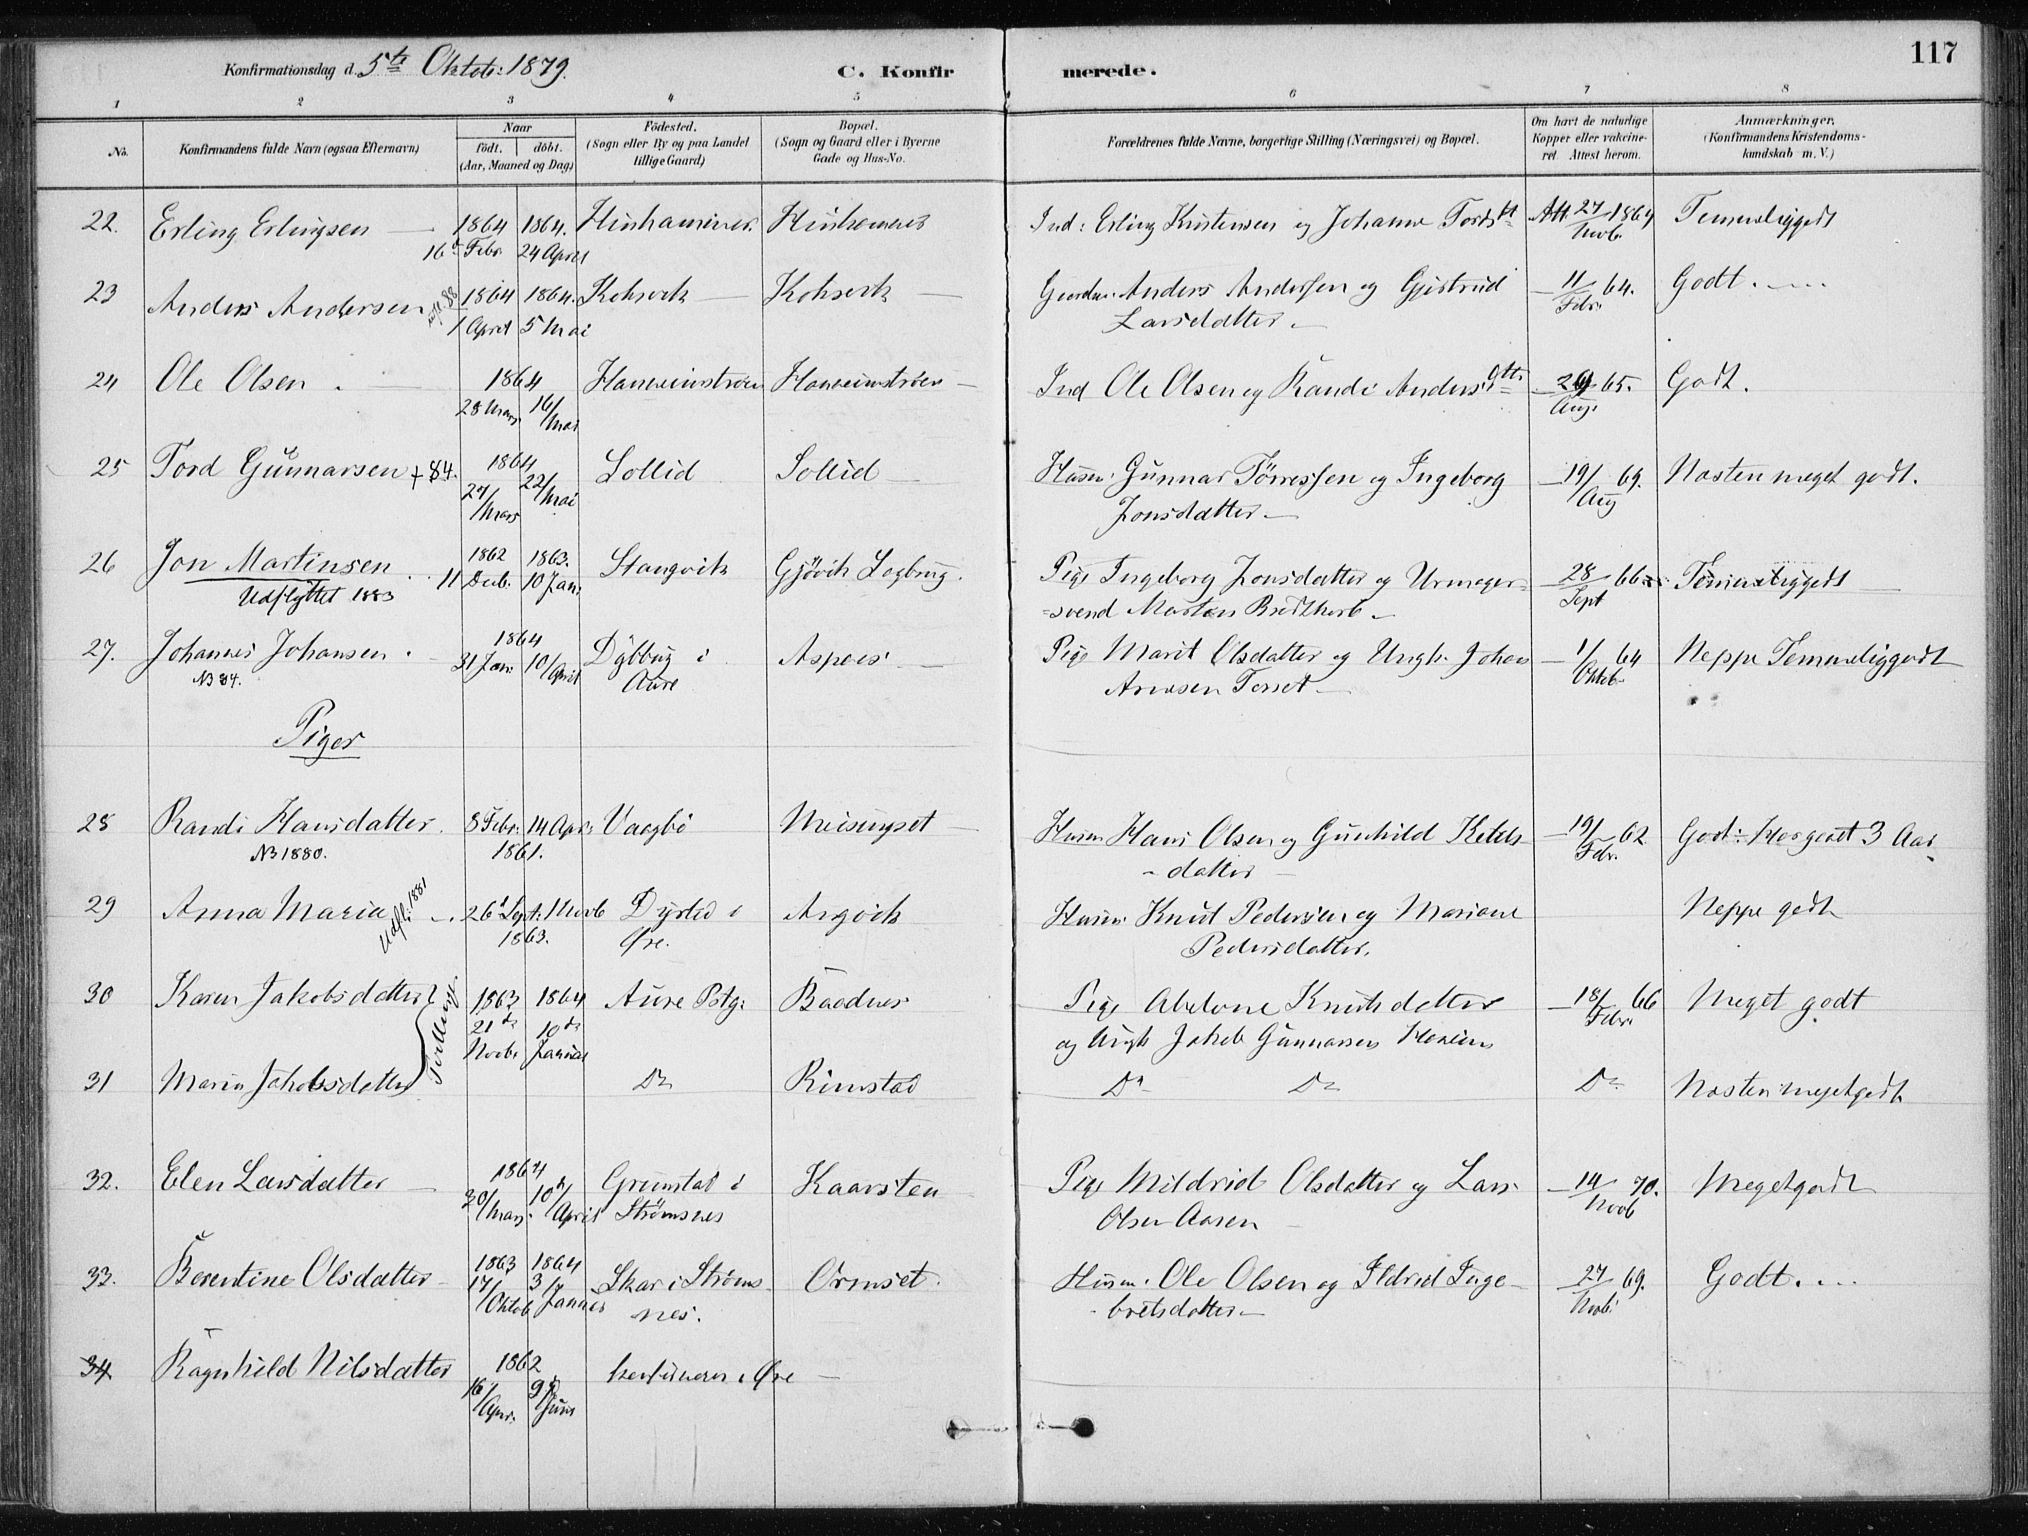 Konfirmationsdag d. 5te Oktob: 1879.
C. Konfirmerede.
117
1 2 3 4 5 6 7 8
No.
Konfirmandens fulde Navn (ogsaa Efternavn)
Naar
født. døbt.
(Aar, Maaned og Dag)
Födested.
(Sogn eller By og paa Landet
tillige Gaard)
Bopæl.
(Sogn og Gaard eller i Byerne
Gade og Hus-No.
Forældrenes fulde Navne, borgerlige Stilling (Næringsvei) og Bopæl.
Om havt de naturlige
Kopper eller vakcine-
ret Attest herom.
Anmærkninger.
(Konfirmandens Kristendoms-
kundskab m. V.)
22. Erling Erlingsen 1864 1864. Ind: Erling Kristensen og Johanne Tordsdt Att. 27 1864 Temmeliggodt
16d Febr. 24 April Novb.
23 Anders Andersen 88 1864 1864. Anders Andersen og Gjertrud 11 64. Godt.
1 April 5 Mai Larsdatter Febr.
24 Ole Olsen 1864 Ind Ole Olsen og Randi Andersdtr 65. Godt.
28 Mars 16/Mai Aug.
25 Tord Gunnarsen +84. 1864 Sollid Sollid Husm. Gunnar Tørressen og Ingeborg 19/ 69. Næsten meget godt.
27/Mars 22/Mai Jonsdatter Aug
26 Jon Martinsen 1862 1863. Stangvik Gjøvik Pige Ingeborg Jonsdatter og Urmager- 28 66 Temmeliggodt
Udflyttet 1883 11 Decb. 10 Jan. =svend Morten Sept
27. Johannes Johansen 1864 i Aspøen Pige Marit Olsdatter og Ungk. Johan 1/ 64 Neppe Temmeliggodt
N 84. 31 Jan. 10/April Aure Arnesen Oktob.
Piger
28 Randi Hansdatter. 8 Febr. 14 Apr: Vaagbø Meisingset Husm Hans Olsen og Gunhild Ketels- 19/ 62 Godt 3 Aar
N 1880. 1861. datter Febr.
29 Anna Maria Udfl. 1881 26d Sept. 1 Novb i Angvik Husm. Knut Pedersen og Mariane Neppe godt
1863. Øre. Pedersdatter.
30 Karen Jakobsdatter 1863 1864 Aure Pstg: Baadnes Pige Abelone Knutsdatter 18/ 66 Meget godt
Tvillinger 21de 10de og Ungk Jakob Gunnarsen Febr.
Novb. Januar
31 Maren Jakobsdatter Do Rimstad Do Do Do Næsten megetgodt
32. Elen Larsdatter 1864 Grimstad i Kaarsten Pige Mildrid Olsdatter og Lars 14 70. Megetgodt
30/Mars. 10d/April Strømsnes Olsen Aasen Novb
33. Berentine Olsdatter 1863 1864 Skar i Strøms- Ormset. Husm. Ole Olsen og Ildrid Inge- 27 69. Godt.
17/Oktob 3/Januar nes. bretsdatter Novb.
34 Ragnhild Nilsdatter 1862 i Øre
16/Apr. 9d/Juni